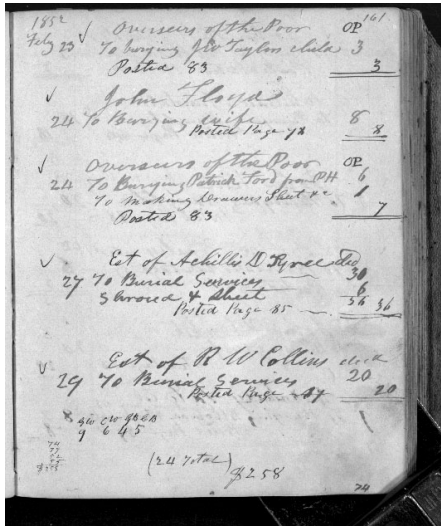 161
1852 Overseers of the Poor OP
Feby 23 To burying Taylors child 3
Posted 83 3
John Floyd
24 To Burying wife 8
Posted Page 8
Overseers of the Poor OP
24 To Burying Patrick Ford from PH 6
To making Drawers Sheet &c 1
Posted 83 7
Est of Achillis D Tyree decd
27 To Burial Services 30
Shroud & Sheet 6
36 36
Posted Page 85
Est of R W Collins decd
29 To Burial Services 20
Posted Page 20
9 6 4 5
(24 Total) $258
74